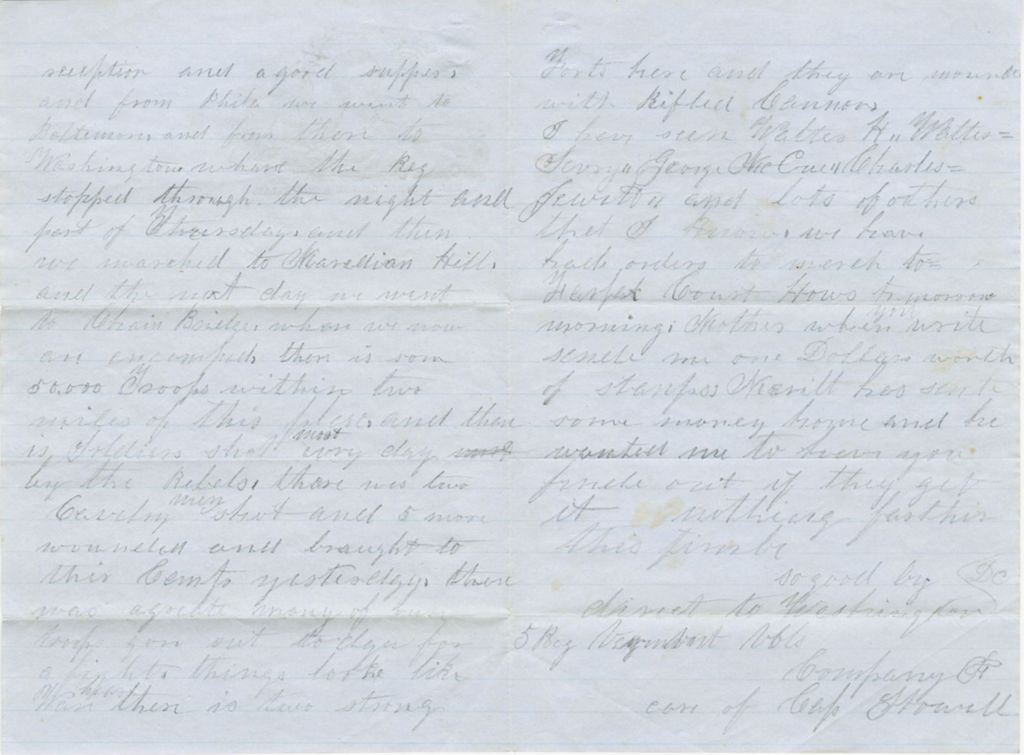 reception and a good supper.
and from Phila we went to
Baltimore. and from there to
Washington. whare the Reg
stopped through the night and
part of Thursday. and then
we marched to Maredian Hill.
and the next day we went
to Chain Bridge. where we now
are encamped. there is som
50.000 Troops within two
miles of this place. and there
is Soldiers shot most evry day
by the Rebels. there was two
Cavelry men shot and 5 more
wounded and braught to
this Camp yesterday. there
was a greate many of our
troops gon out to day for
a fight. things looke like
War here there is two strong
Forts here and they are mounted
with Rifled Cannon.
I have seen Walter H.. Walter=
George McCue.. Charles=
and lots of others
that I know. we have
orders to march to=
Court Hows tomorow
morning. Mother when you write
sende me one Dollars worth
of stamps. Merill has sent
some money home and he
wanted me to have you
finde out if they get
it nothing farther
this time
so good by DC
direct to Washington
5 Reg Vermont Vols
Company F
care of Cap Stowell